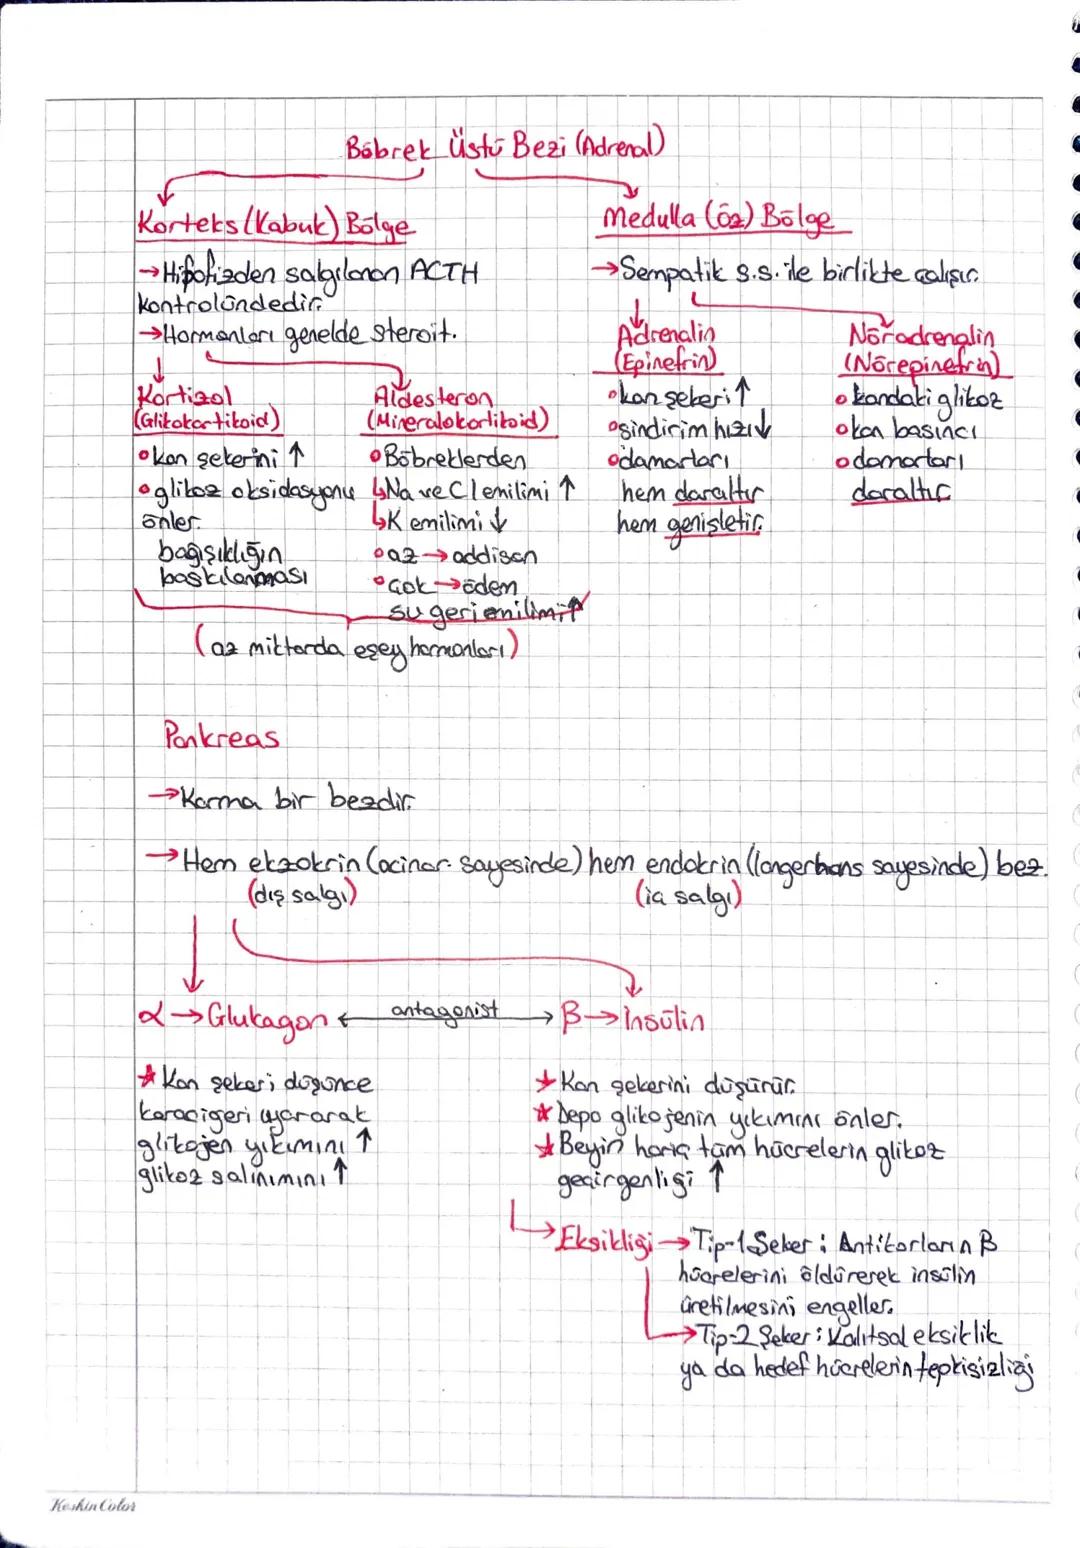 Böbrek Üstü Bezi (Adrenal)
Korteks (Kabuk) Bölge
→Hipofizden salgılanan ACTH
kontrolündedir.
→Hormonları genelde steroit.
Kortizol
(Glikokortikoid)
•kan şekerini ↑
•glikoz oksidasyonu
önler.
bağışıklığın
baskılanması
Aldesteron
(Mineralokortikoid)
•Böbreklerden
↳Na ve Cl emilimi ↑
↳K emilimi ↓
•az → addison
•çok → ödem
su geri emilimi ↑
(az miktarda eşey hormonları)
Medulla (öz) Bölge
→Sempatik s.s. ile birlikte çalışır.
Adrenalin
(Epinefrin)
•kan şekeri ↑
•sindirim hızı ↓
•damarları
hem daraltır
hem genişletir.
Nöradrenalin
(Nörepinefrin)
•kandaki glikoz
•kan basıncı
•damarları
daraltır
Pankreas
→Karma bir bezdir.
→Hem ekzokrin (acinar sayesinde) hem endokrin (langerhans sayesinde) bez.
(dış salgı) (iç salgı)
α → Glukagon ← antagonist → β → İnsülin
★ Kan şekeri düşünce
karaciğeri uyararak
glikojen yıkımını ↑
glikoz salınımını ↑
★ Kan şekerini düşürür.
★ Depo glikojenin yıkımını önler.
★ Beyin hariç tüm hücrelerin glikoz
geçirgenliği ↑
→Eksikliği → Tip-1 Şeker : Antikorların β
hücrelerini öldürerek insülin
üretilmesini engeller.
→Tip-2 Şeker : Kalıtsal eksiklik
ya da hedef hücrelerin tepkisizliği
Keskin Color